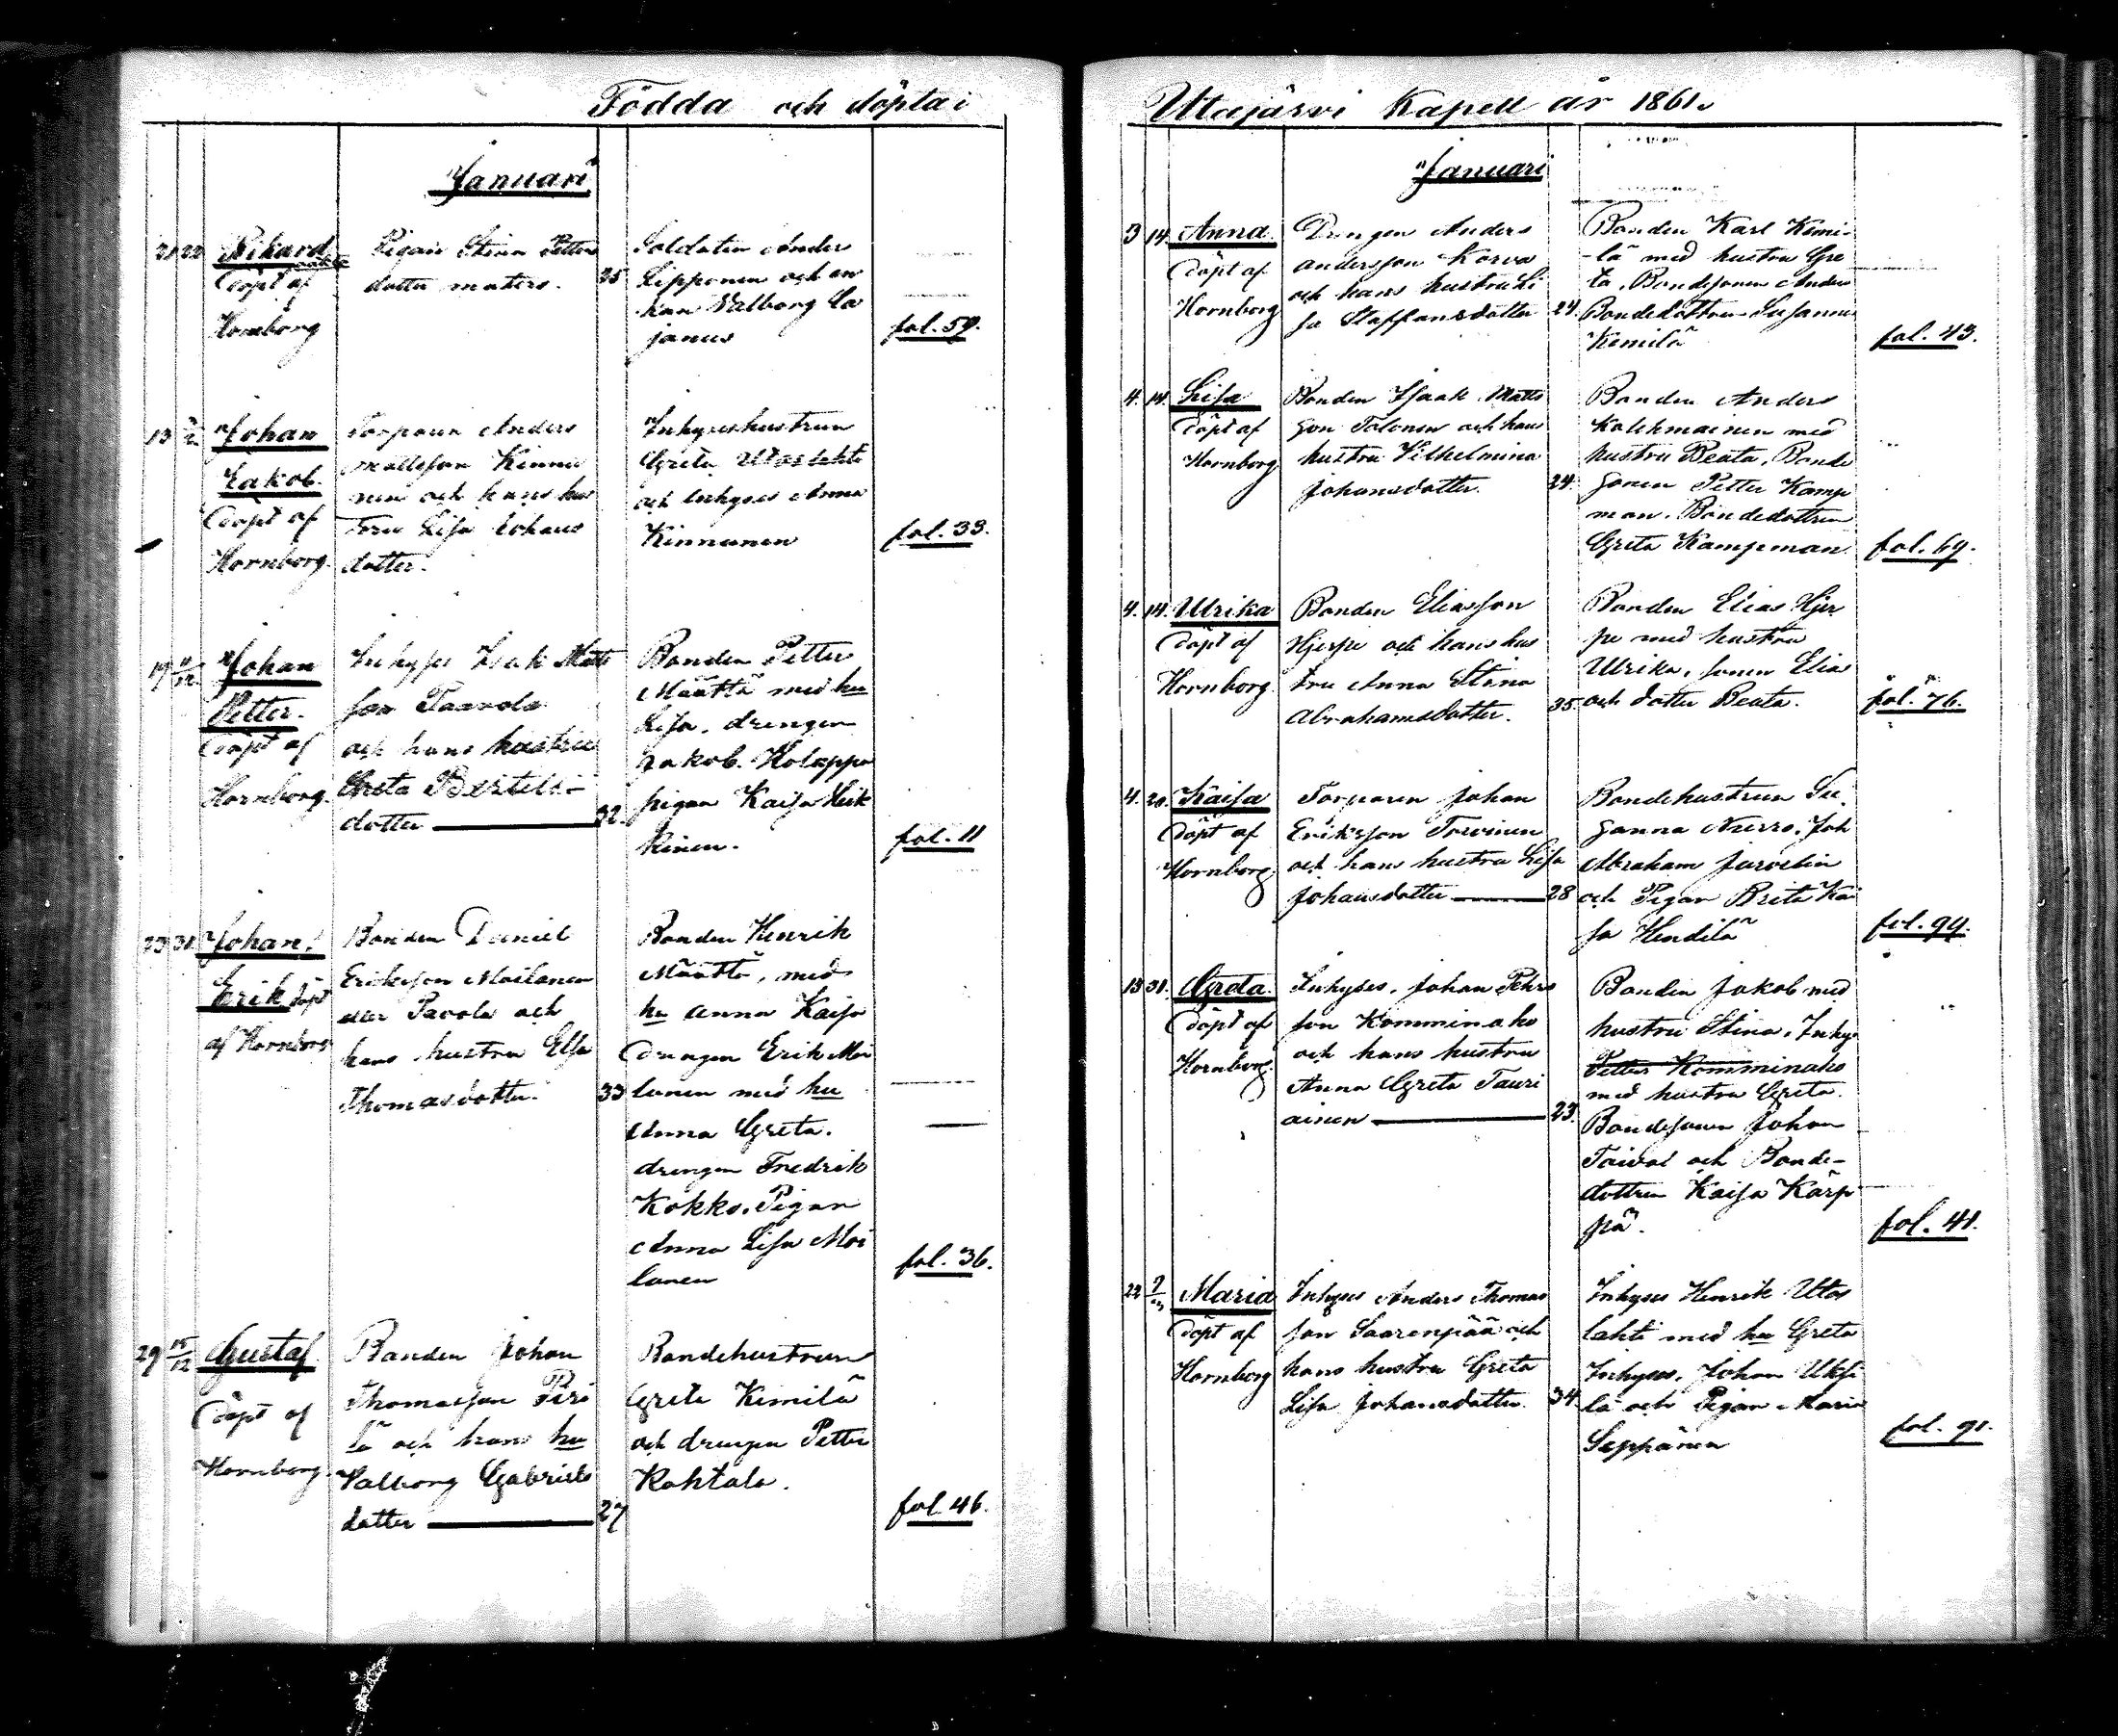 Födda och döpta i
Januari
21 22 Rikard oäkta
döpt af
Hornborg
Pigan Stina Petter
dotter maters. 25
Soldaten Ander
Lipponen och an
kan Valborg La
janus
fol. 59.
13 Johan
Jakob.
döpt af
Hornborg.
Torparen Anders
Mattsson Kinnu
nen och hans hus
tru Lisa Johans
dotter.
Inhyseshustrun
Greta Utoslahti
och inhyses Anna
Kinnunen
fol. 33.
19 Johan
Petter.
döpt af
Hornborg.
Inhyses Isak Matts
son Paavola
och hans hustru
Greta Bertels-
dotter 32.
Bonden Petter
Määttä med hu
Lisa, drengen
Jakob Holappa
pigan Kaisa Heik
kinen.
fol. 11
23 31 Johan
Erik döpt
af Hornborg
Bonden Daniel
Eriksson Moilanen
eller Pavola och
hans hustru Elsa
Thomasdotter. 33
Bonden Henrik
Määttä, med
hu Anna Kaisa
drengen Erik Moi
lanen med hu
Anna Greta.
drengen Fredrik
Kokko. Pigan
Anna Lisa Moi
lanen
fol. 36.
29 15/12 Gustaf
döpt af
Hornborg.
Bonden Johan
Thomasson Piri
lä och hans hu
Valborg Gabriels
dotter 27
Bondehustrun
Greta Kimilä
och drengen Petter
Kohtala.
fol. 46.
Utajärvi Kapell år 1861.
Januari
3 14 Anna
döpt af
Hornborg
Drengen Anders
Andersson Korva
och hans hustru Li
sa Staffansdotter 24.
Bonden Karl Kimi-
lä med hustru Gre
ta, Bondesonen Anders
Bondedottren Susanna
Kemilä
fol. 43.
4. 14. Lisa
döpt af
Hornborg
Bonden Isaak Matts
son Tolonen och hans
hustru Vilhelmina
Johansdotter. 24.
Bonden Anders
Kolehmainen med
hustru Beata, Bonde
sonen Petter Kamp
man. Bondedottren
Greta Kampman.
fol. 69.
4. 14. Ulrika
döpt af
Hornborg.
Bonden Eliasson
Hjerpe och hans hus
tru Anna Stina
Abrahamsdotter. 35.
Bonden Elias Hjer
pe med hustru
Ulrika, sonen Elias
och dotter Beata.
fol. 76.
4. 20. Kaisa
döpt af
Hornborg.
Torparen Johan
Eriksson Torvinen
och hans hustru Lisa
Johansdotter 28
Bondehustrun Su
sanna Nurro, Joh
Abraham Jurvelin
och Pigan Brita Kai
sa Hendilä
fol. 99.
13 31. Greta
döpt af
Hornborg.
Inhyses, Johan Pehrs
son Komminaho
och hans hustru
Anna Greta Tauri
ainen 23.
Bonden Jakob med
hustru Stina, Inhys
Petter Komminaho
med hustru Greta.
Bondesonen Johan
Toivol och Bonde-
dottren Kaisa Kärp
pä.
fol. 41.
22 Maria
döpt af
Hornborg
Inhyses Anders Thomas
son Saarenpää och
hans hustru Greta
Lisa Johansdotter. 34.
Inhyses Henrik Utos
lahti med hu Greta
Inhyses, Johan Uksi
la och Pigan Maria
Seppänen
fol. 91.